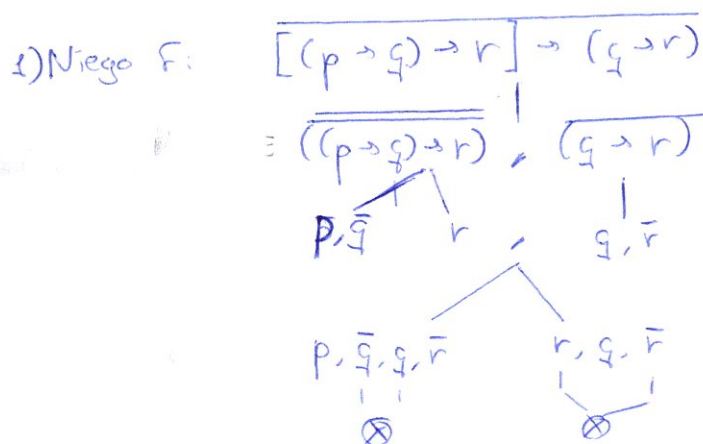 1) Niego F: \overline{[(p → q) → r] → (q → r)}
≡ \overline{\overline{((p → q) → r)}} , \overline{(q → r)}
p, q̄ r , q, r̄
p, q̄, q, r̄ r, q, r̄
⊗ ⊗